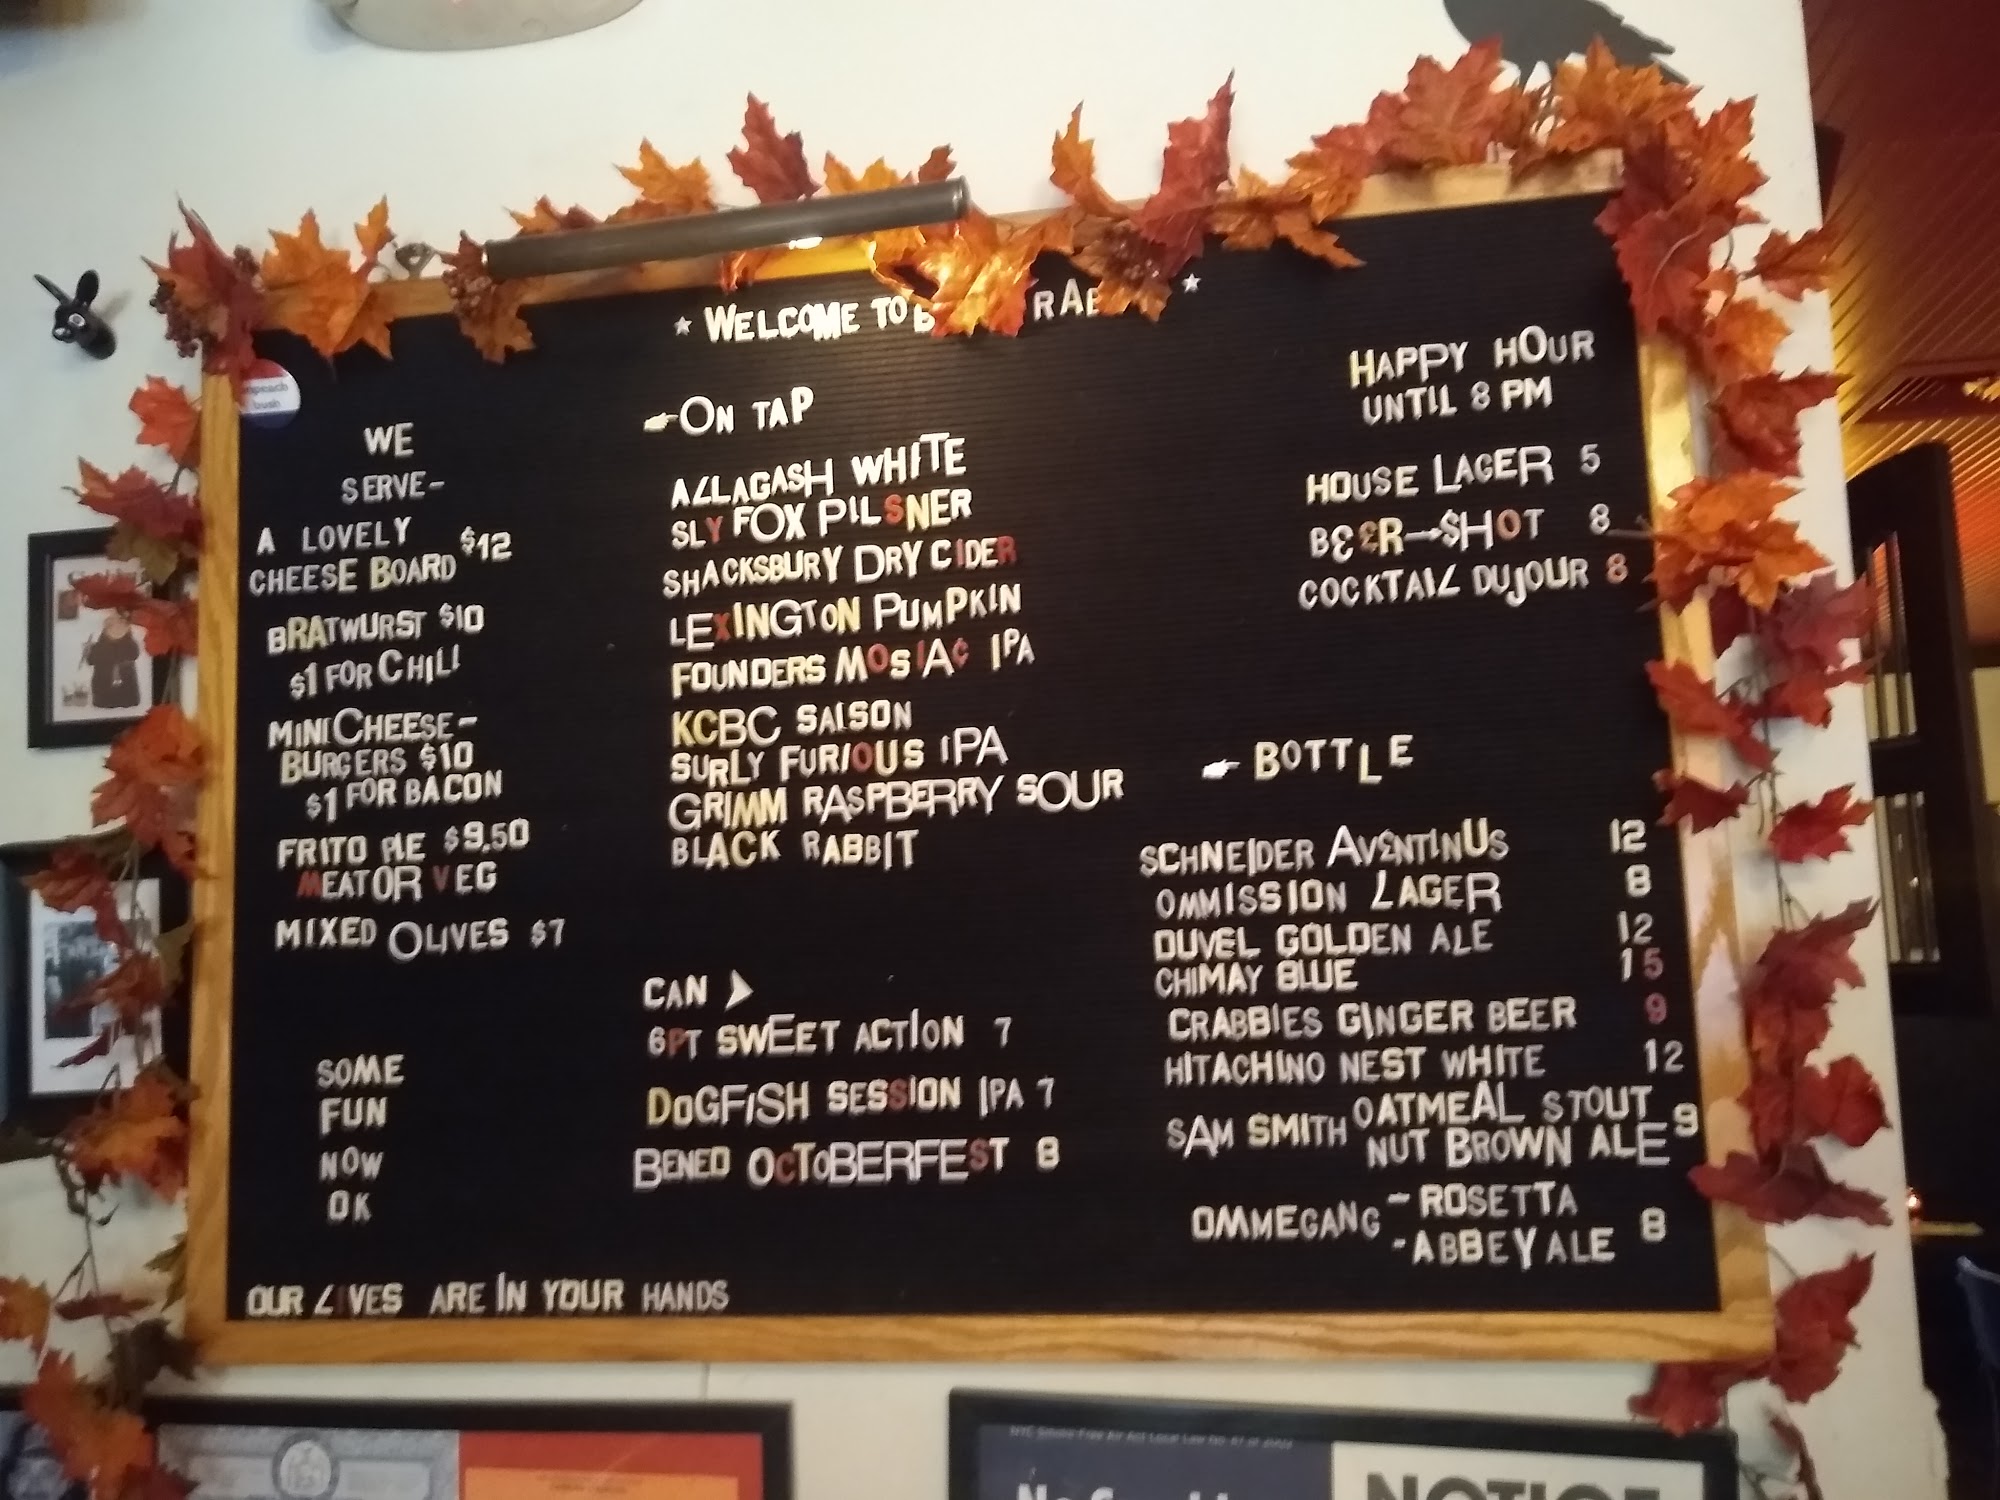 ★ WELCOME TO
Impeach
bush
WE
SERVE-
A LOVELY
CHEESE BOARD $12
BRATWURST $10
$1 FOR CHILI
MINI CHEESE-
BURGERS $10
$1 FOR BACON
FRITO PIE $9.50
MEAT OR VEG
MIXED OLIVES $7
SOME
FUN
NOW
OK
OUR LIVES ARE IN YOUR HANDS
ON TAP
ALLAGASH WHITE
SLY FOX PILSNER
SHACKSBURY DRY CIDER
LEXINGTON PUMPKIN
FOUNDERS MOSIAC IPA
KCBC SAISON
SURLY FURIOUS IPA
GRIMM RASPBERRY SOUR
BLACK RABBIT
CAN
6PT SWEET ACTION 7
DOGFISH SESSION IPA 7
BENED OCTOBERFEST 8
HAPPY HOUR
UNTIL 8 PM
HOUSE LAGER 5
BEER→SHOT 8
COCKTAIL DUJOUR 8
BOTTLE
SCHNEIDER AVENTINUS 12
OMMISSION LAGER 8
DUVEL GOLDEN ALE 12
CHIMAY BLUE 15
CRABBIES GINGER BEER 9
HITACHINO NEST WHITE 12
SAM SMITH OATMEAL STOUT 9
NUT BROWN ALE
OMMEGANG - ROSETTA 8
- ABBEY ALE
NYC Smoke Free Air Act Local Law No 47 of 2002
NOTICE